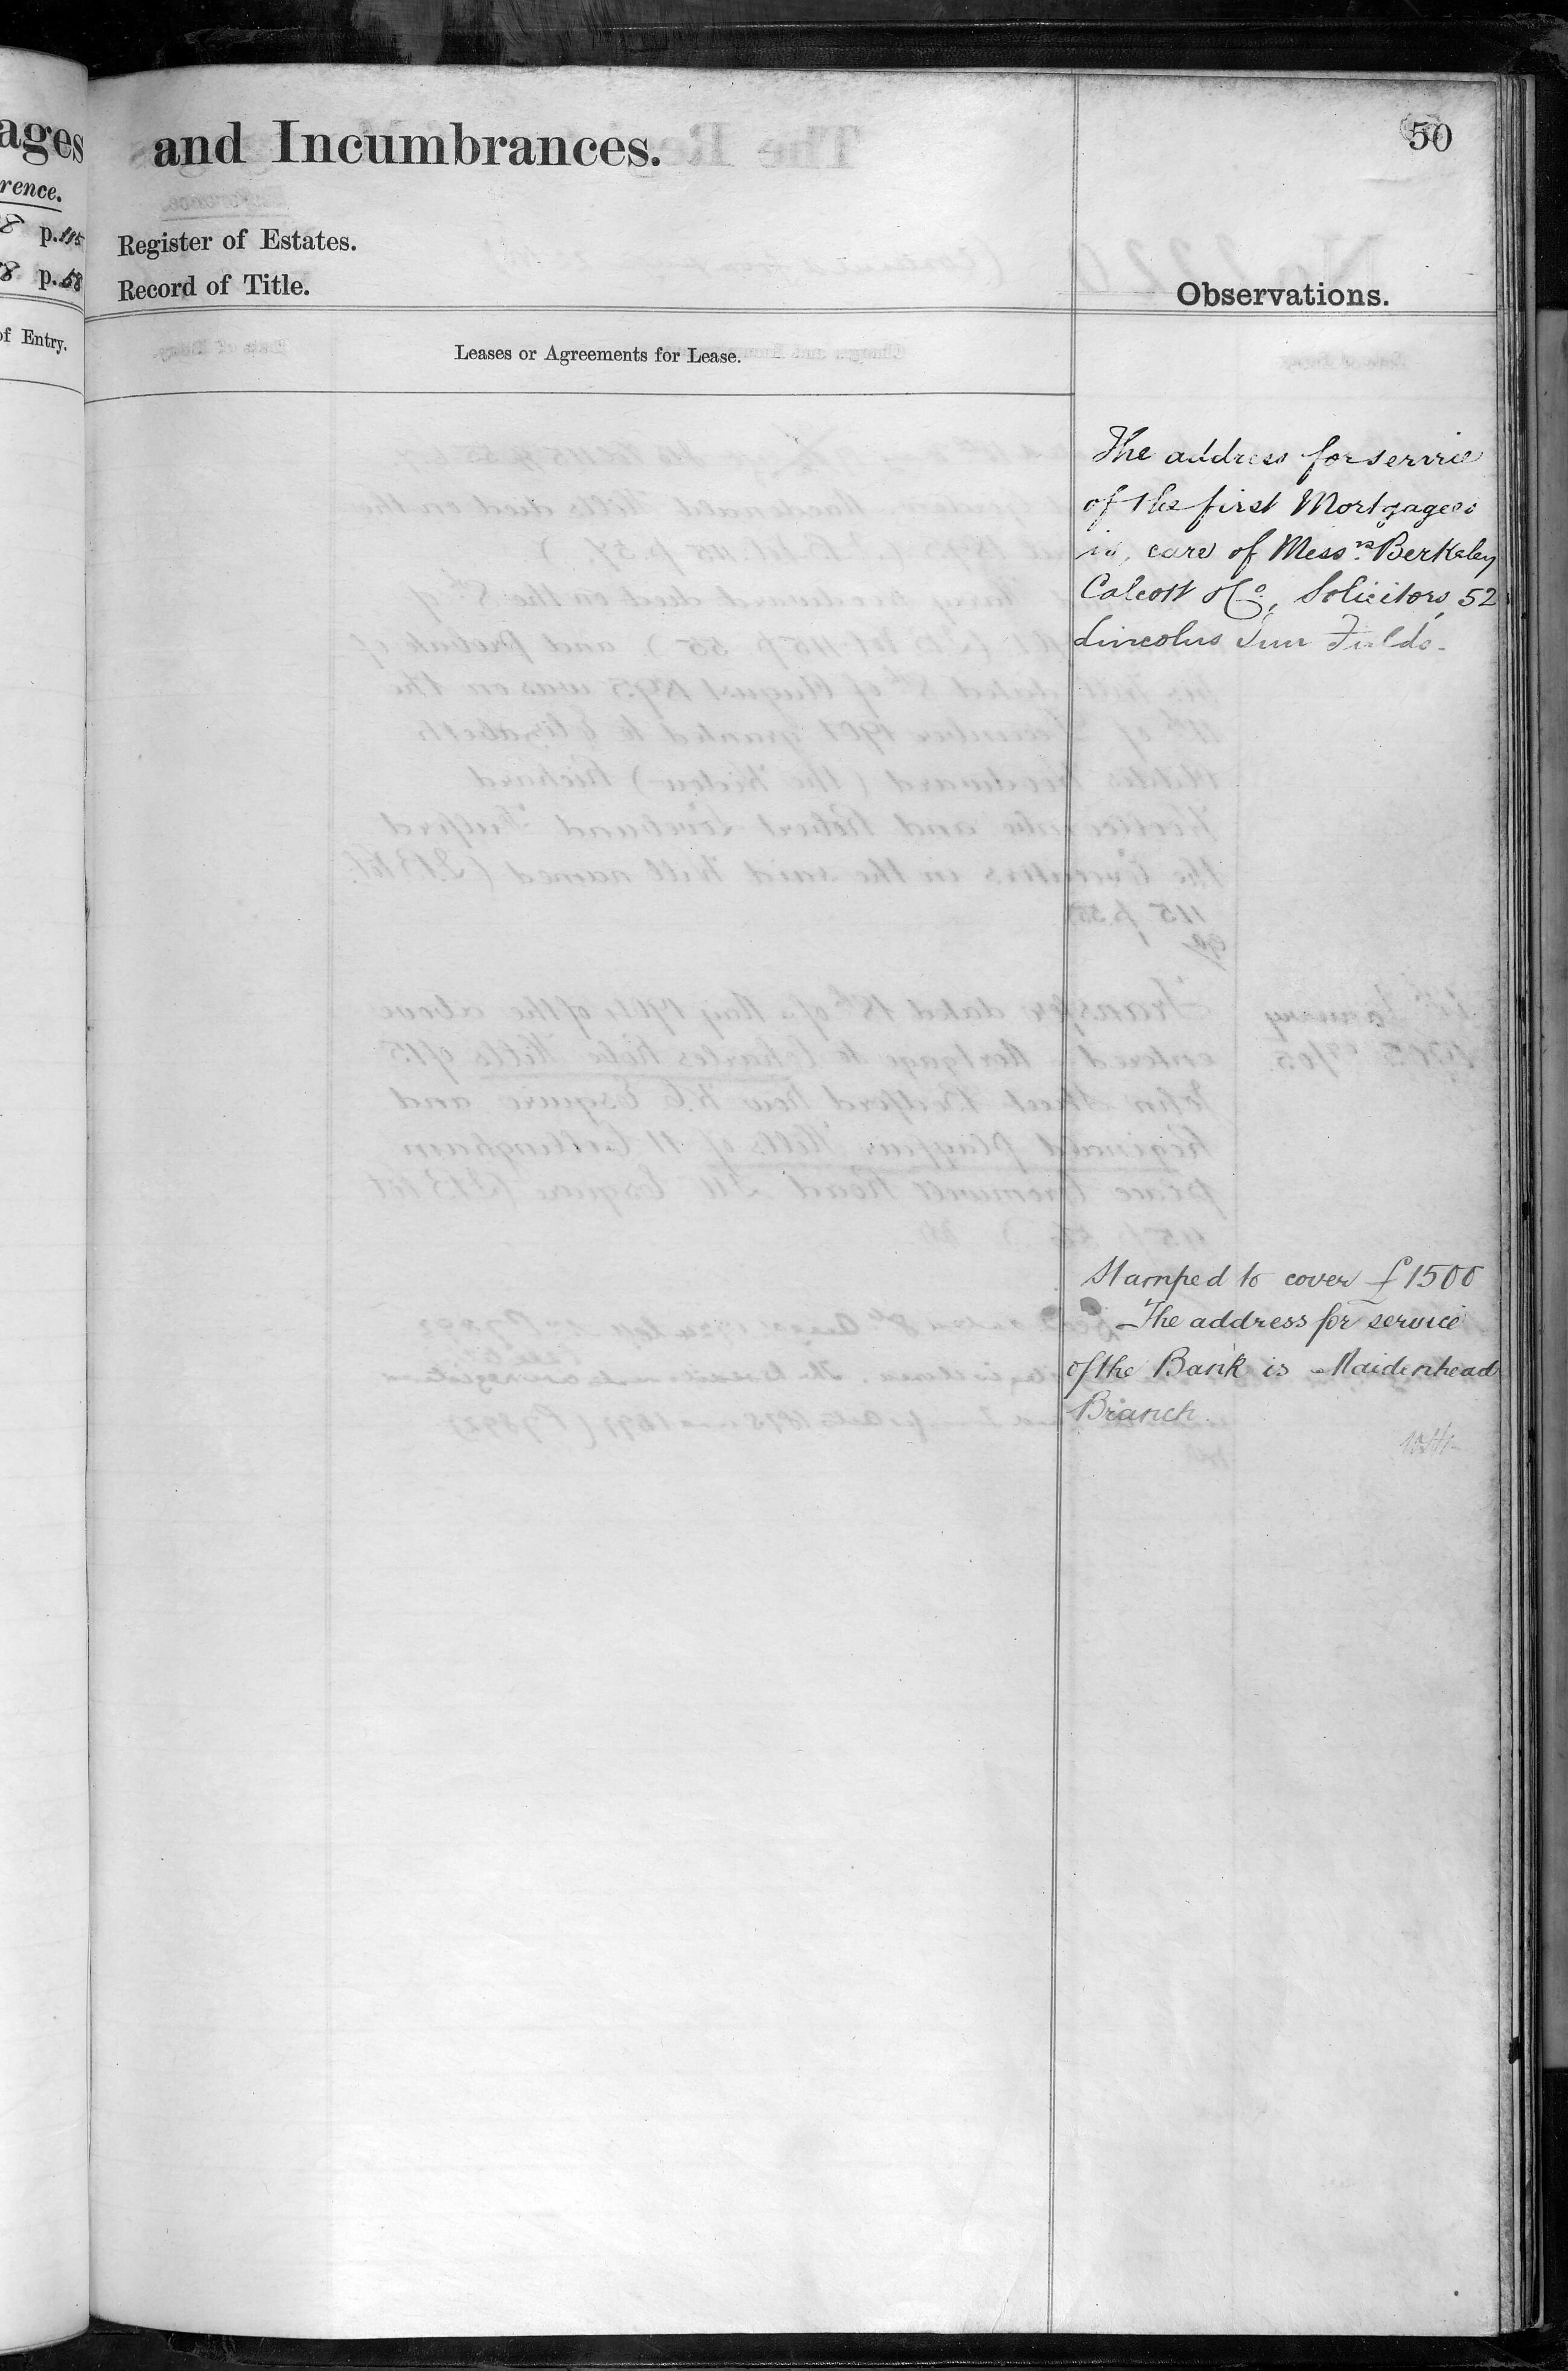 ages
rence.
8 p. 115
8 p. 58
of Entry.
and Incumbrances.
50
Register of Estates.
Record of Title.
Observations.
Leases or Agreements for Lease.
The address for service
of the first Mortgagees
is, care of Messrs. Berkeley
Calcott & Co, Solicitors, 52
Lincolns Inn Fields.
Stamped to cover £1500
The address for service
of the Bank is Maidenhead
Branch.